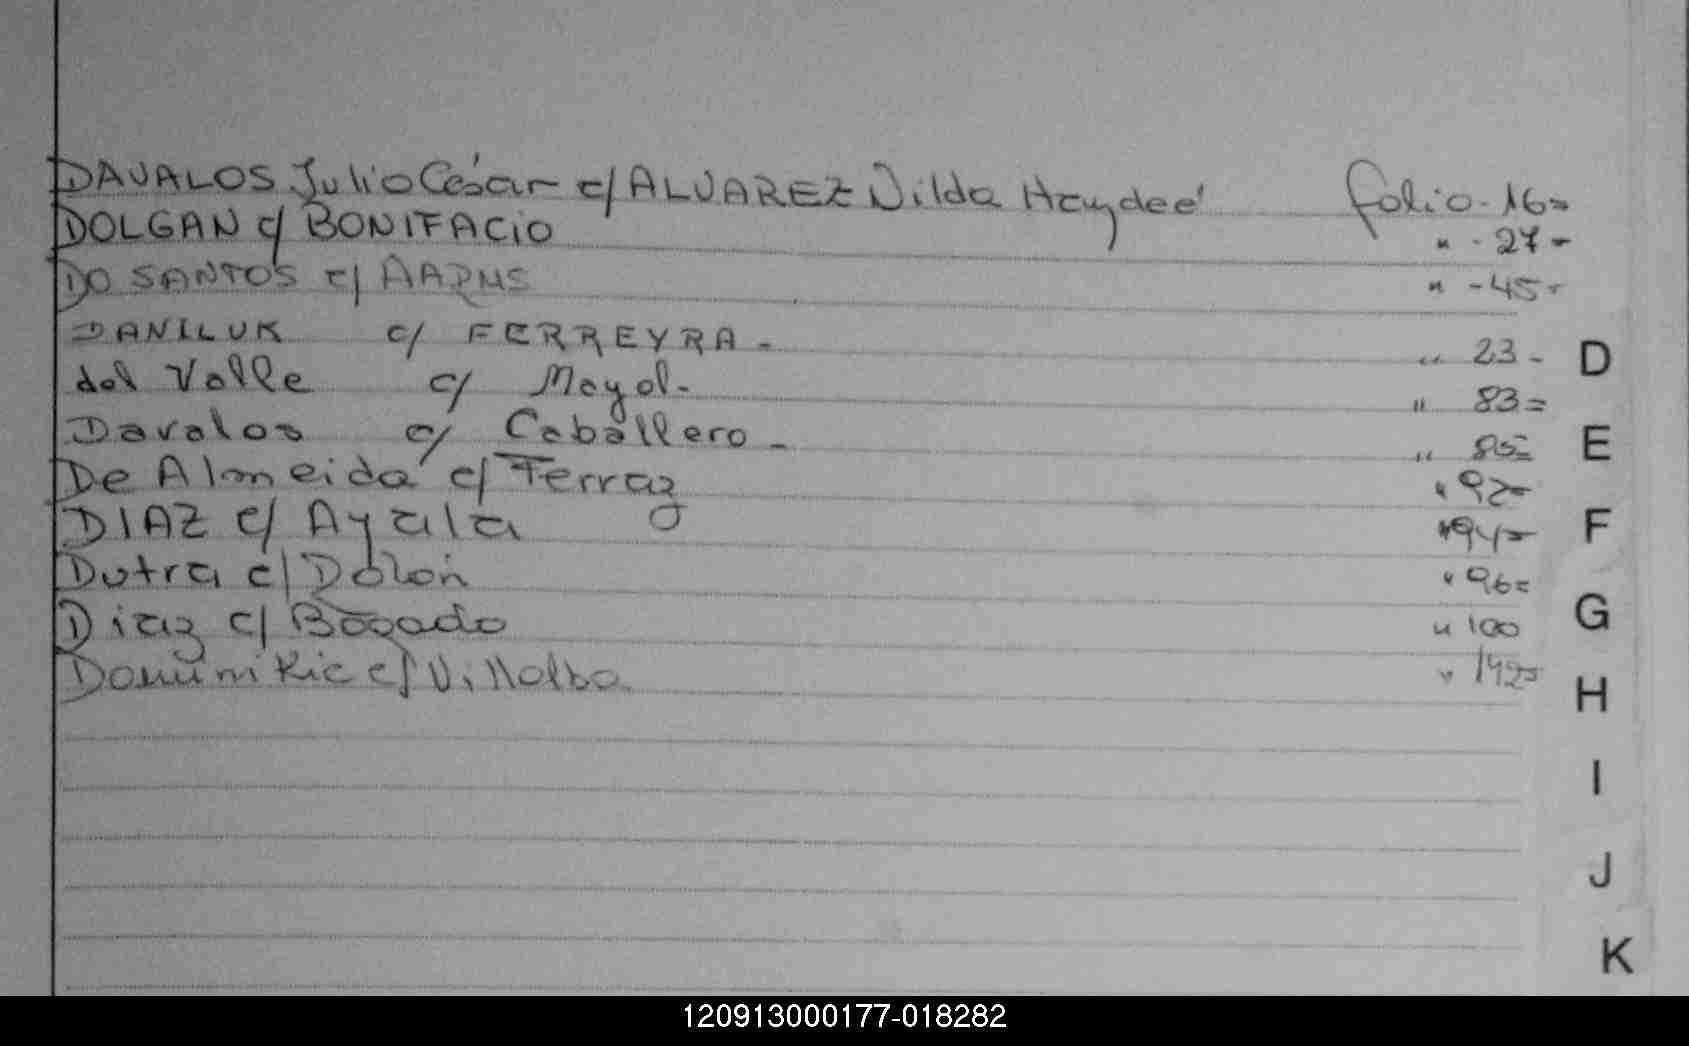 DAVALOS Julio César c/ ALVAREZ Nilda Haydeé folio - 16=
DOLGAN c/ BONIFACIO " - 27 -
DO SANTOS c/ " - 45 -
DANILUK c/ FERREYRA - " 23 -
del Valle c/ Mayol - " 83 =
Davalos c/ Caballero - "
De Almeida c/ Ferraz " 92=
DIAZ c/ Ayala " 94=
Dutra c/ Dolón " 96=
Diaz c/ Bogado " 100
c/ Villalba "
D
E
F
G
H
I
J
K
120913000177-018282